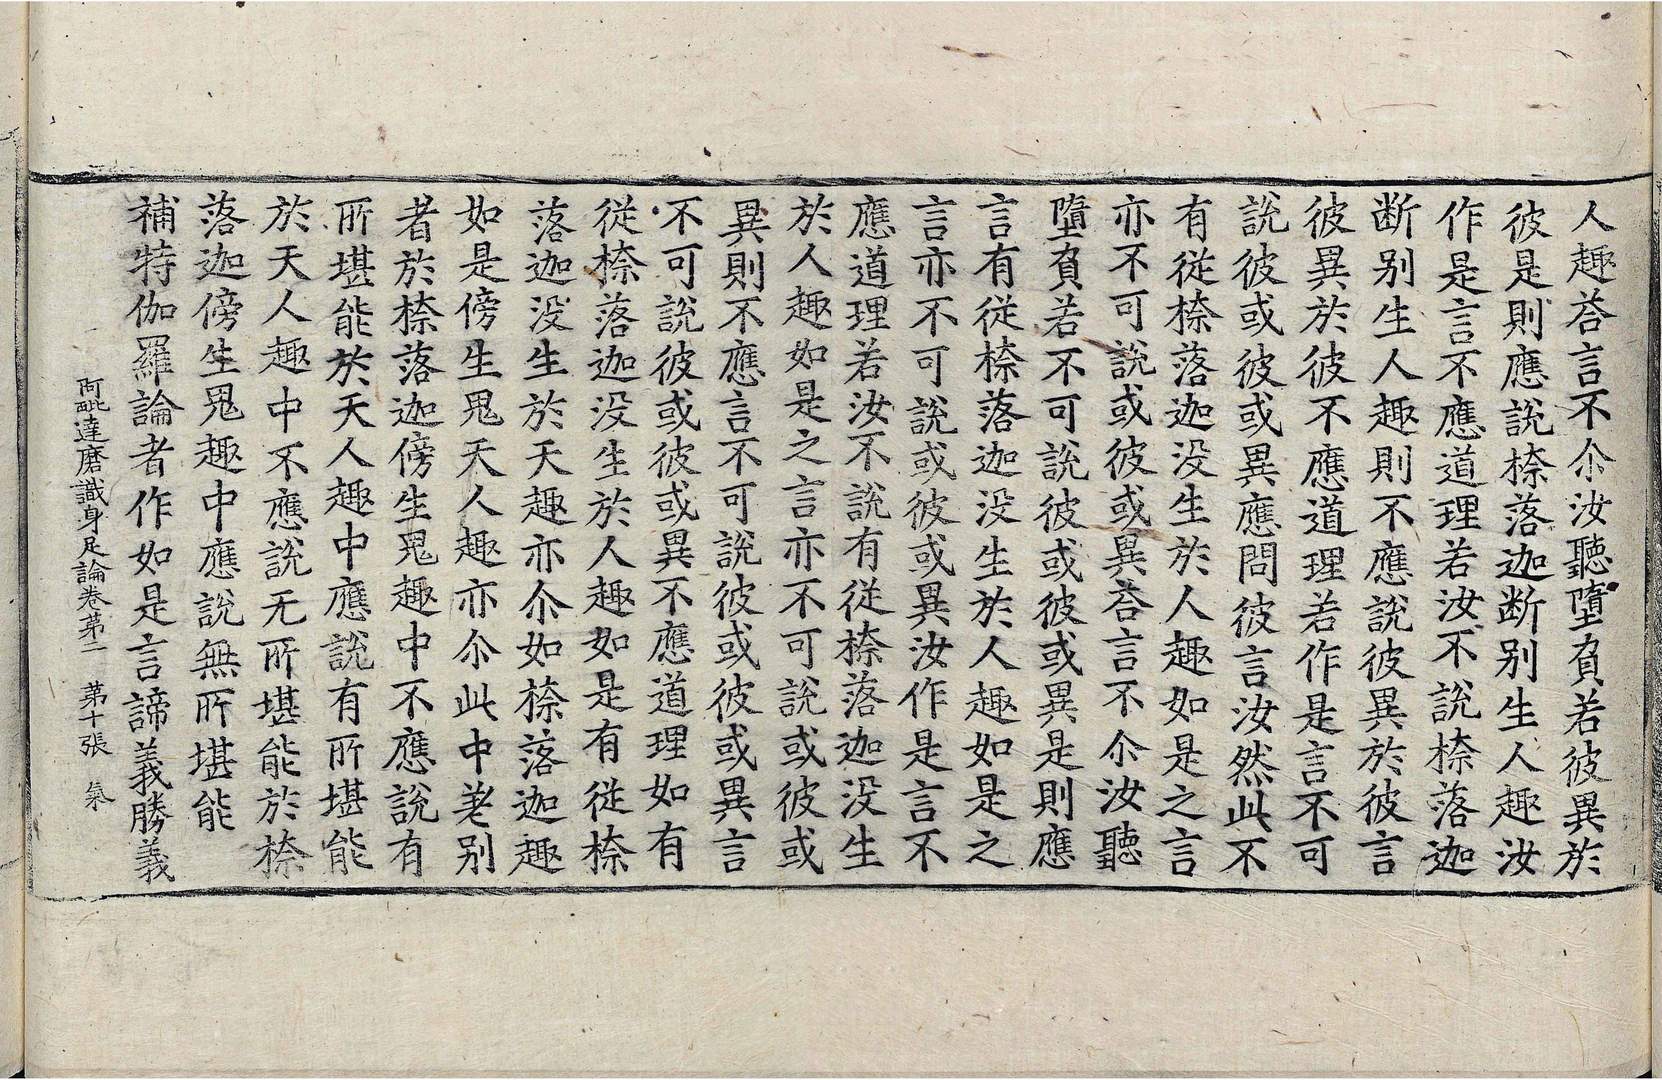 人趣荅言不尒汝聽墮負若彼異於
彼是則應說㮈落迦断别生人趣汝
作是言不應道理若汝不說㮈落迦
断别生人趣則不應說彼異於彼言
彼異於彼不應道理若作是言不可
說彼或彼或異應問彼言汝然此不
有從㮈落迦没生於人趣如是之言
亦不可說或彼或異荅言不尒汝聽
墮負若不可說彼或彼或異是則應
言有從㮈落迦没生於人趣如是之
言亦不可說或彼或異汝作是言不
應道理若汝不說有從㮈落迦没生
於人趣如是之言亦不可說或彼或
異則不應言不可說彼或彼或異言
不可說彼或彼或異不應道理如有
從㮈落迦没生於人趣如是有從㮈
落迦没生於天趣亦尒如㮈落迦趣
如是傍生鬼天人趣亦尒此中差别
者於㮈落迦傍生鬼趣中不應說有
所堪能於天人趣中應說有所堪能
於天人趣中不應說无所堪能於㮈
落迦傍生鬼趣中應說無所堪能
補特伽羅論者作如是言諦義勝義
阿毗達磨識身足論卷苐二 苐十張 氣